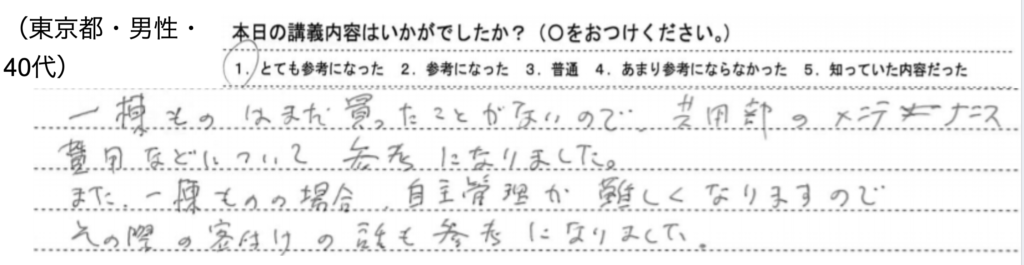 （東京都・男性・
40代）
本日の講義内容はいかがでしたか？（○をおつけください。）
1．とても参考になった　2．参考になった　3．普通　4．あまり参考にならなかった　5．知っていた内容だった
一棟ものはまだ買ったことがないので、共用部のメンテナンス
費用などについて参考になりました。
また、一棟ものの場合、自主管理が難しくなりますので
その際の客付けの話も参考になりました。